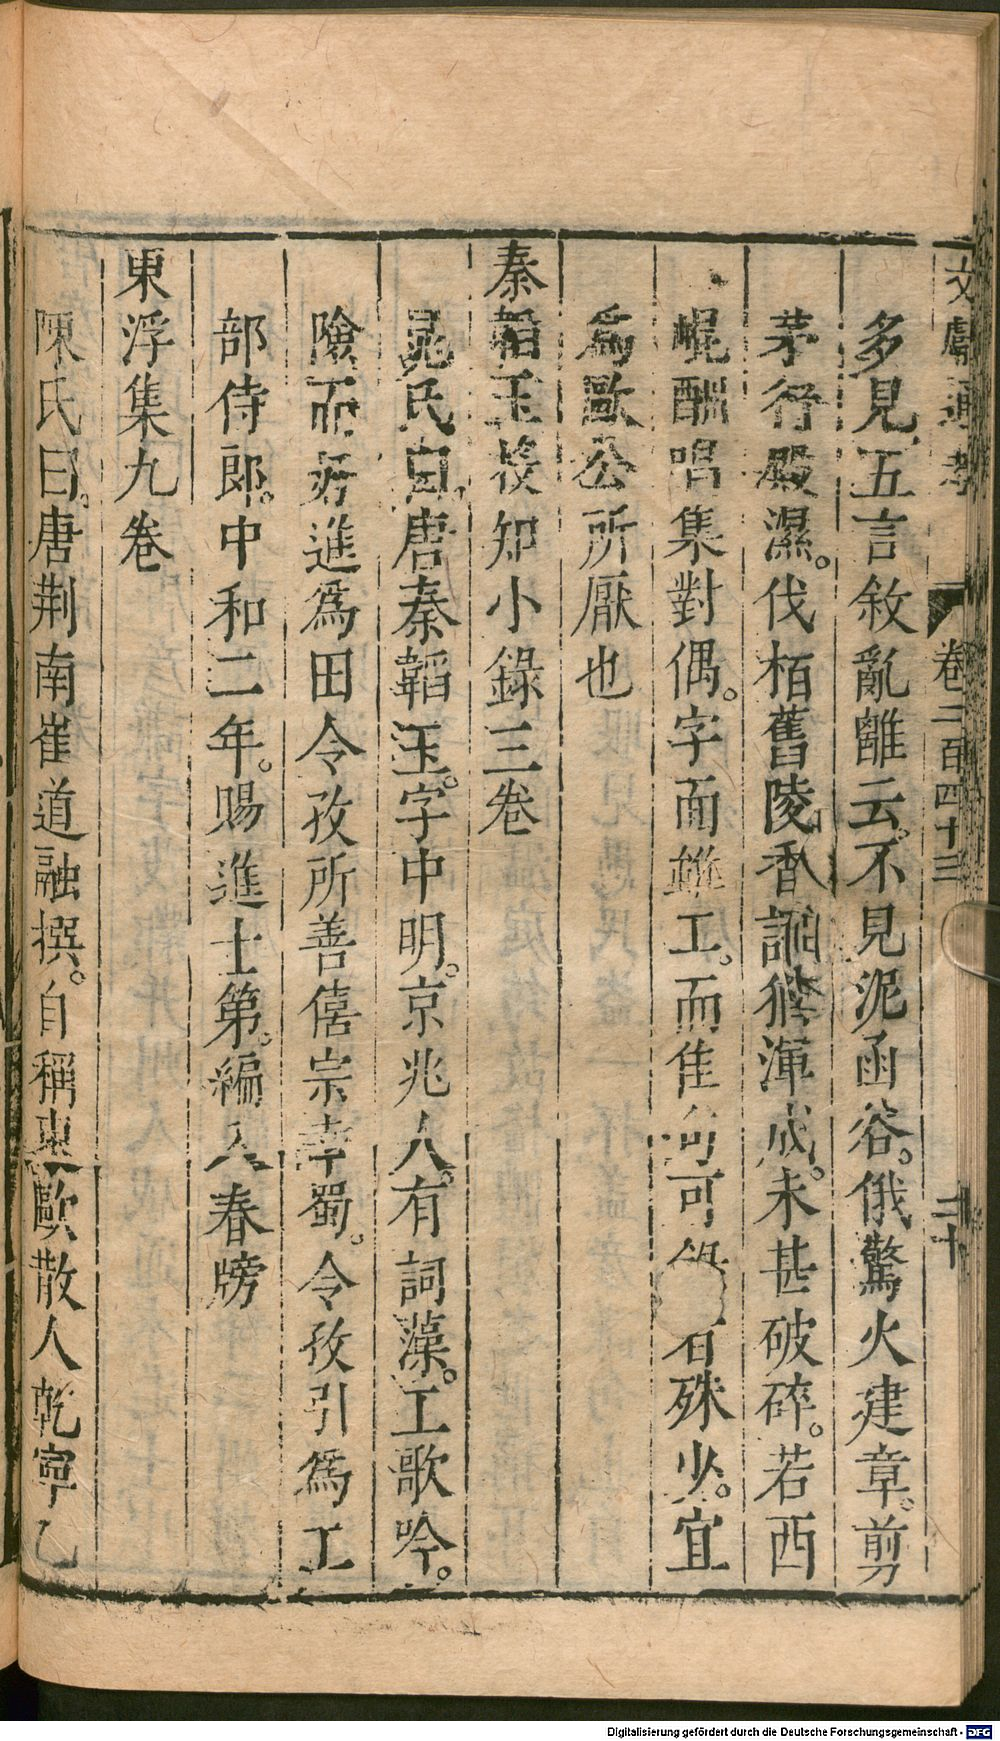 文獻通考 卷二百四十三 二十
多見五言敘亂離云不見泥函谷。俄驚火建章。剪
茅行殿濕。伐栢舊陵香語猶渾成。未甚破碎。若西
崐酬唱集對偶。字而雖工。而佳句可者殊少。宜
爲歐公所厭也
秦韜玉投知小錄三卷
晁氏曰。唐秦韜玉。字中明。京兆人。有詞藻。工歌吟。
險而好進爲田令孜所善僖宗幸蜀。令孜引爲工
部侍郎。中和二年。賜進士第。編入春牓
東浮集九卷
陳氏曰。唐荆南崔道融撰。自稱東歐散人乾寧乙
Digitalisierung gefördert durch die Deutsche Forschungsgemeinschaft - DFG